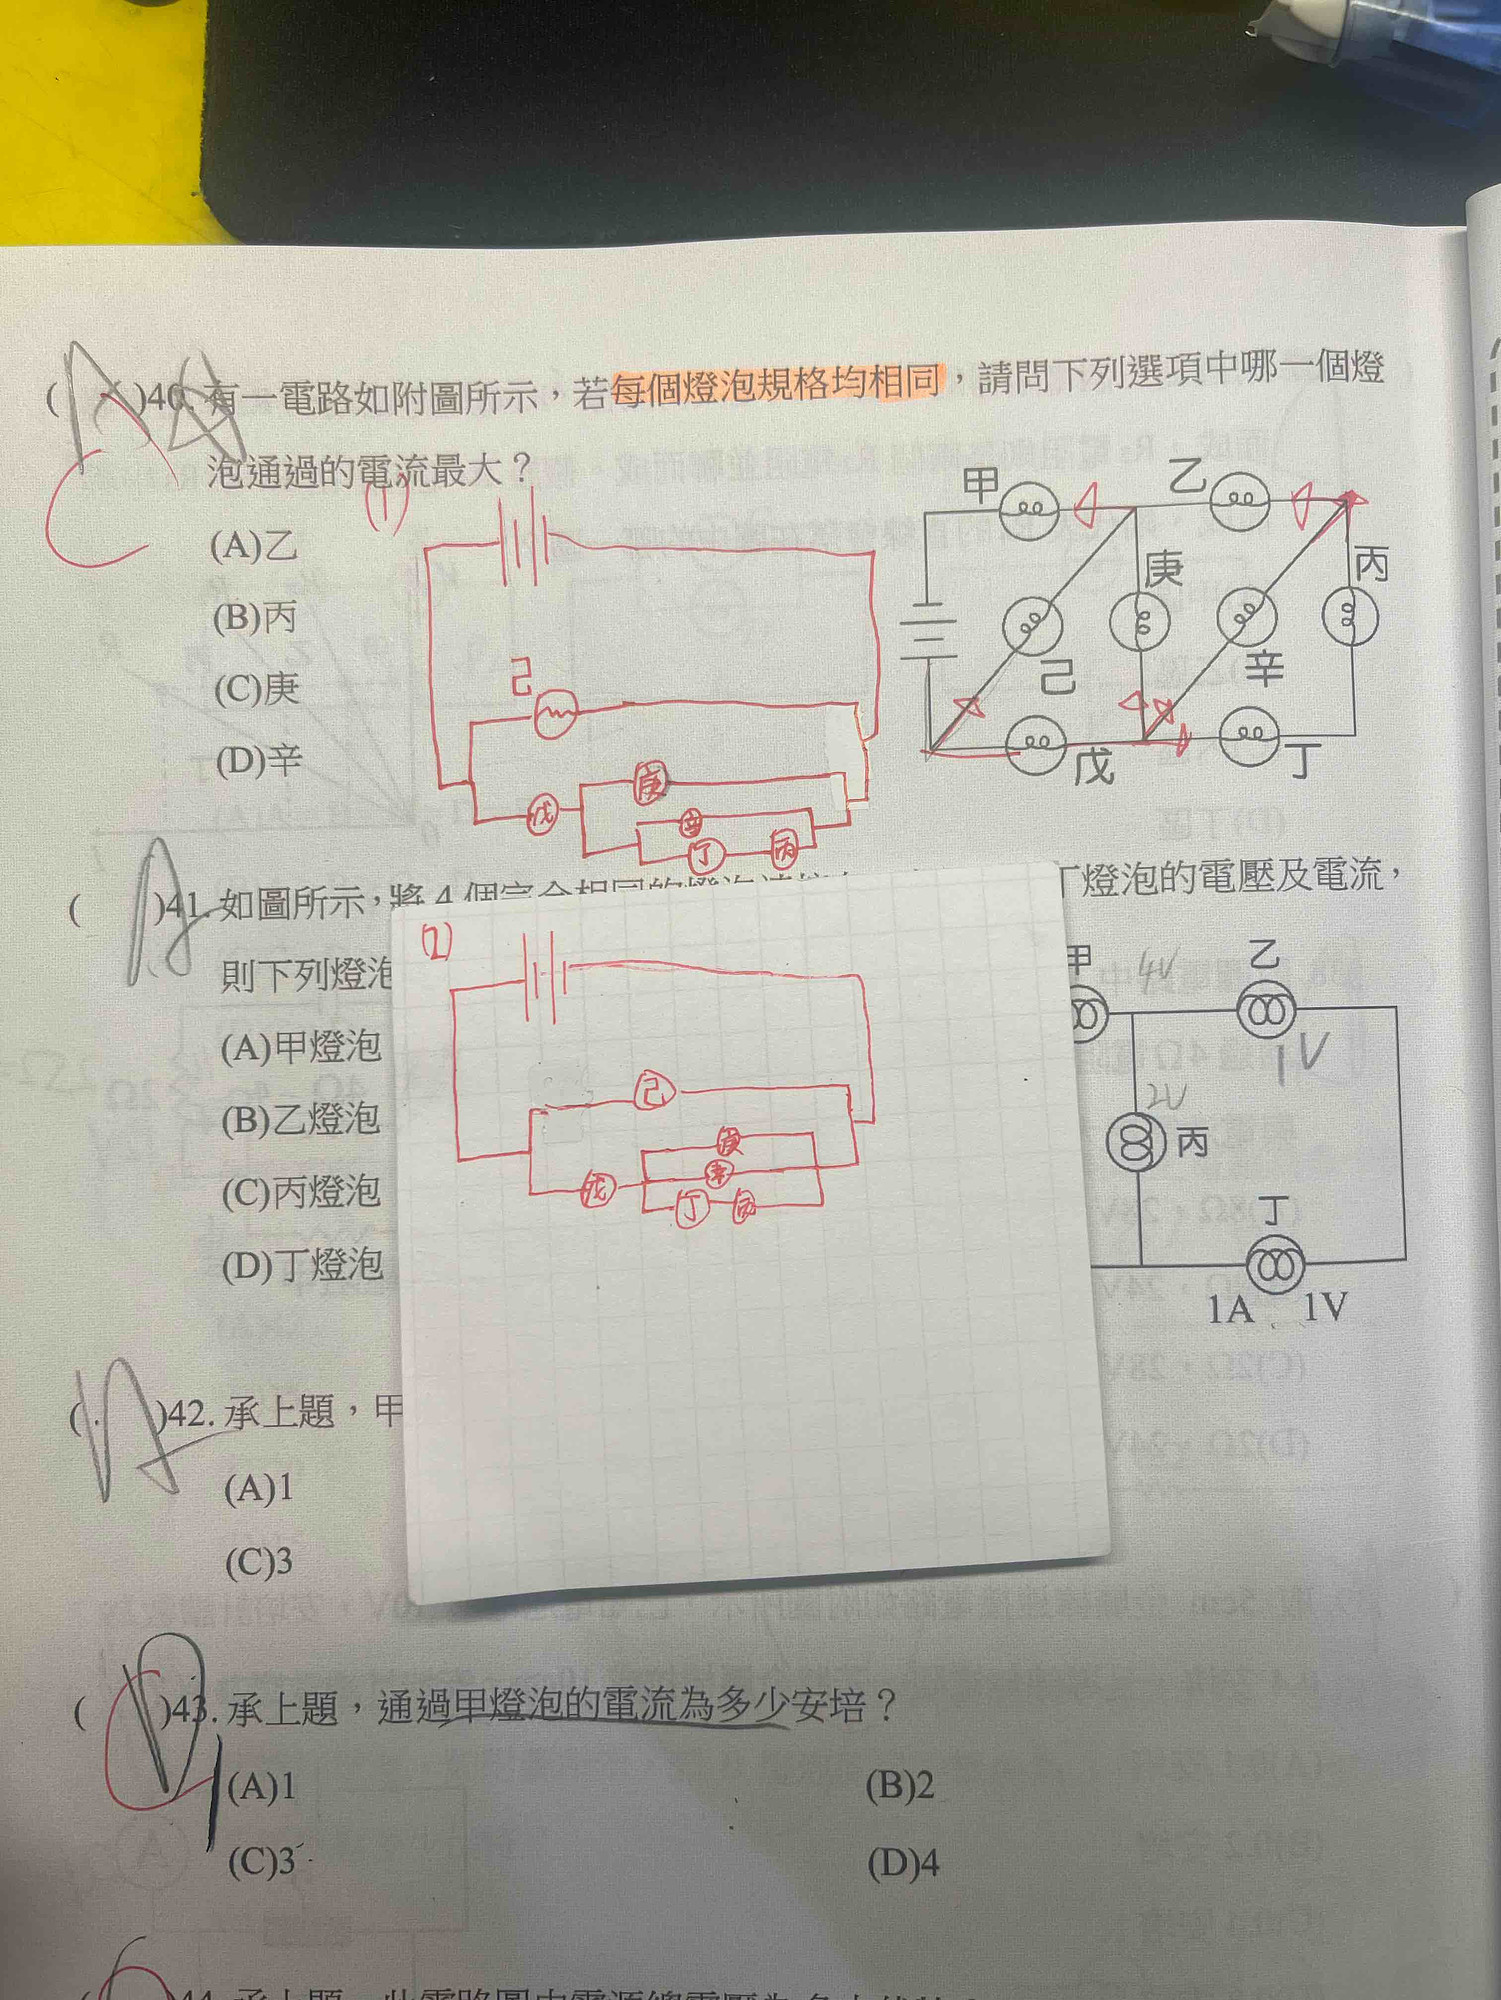 ( )40. 有一電路如附圖所示，若每個燈泡規格均相同，請問下列選項中哪一個燈
泡通過的電流最大？
(A)乙
(B)丙
(C)庚
(D)辛
C
甲
乙
丙
庚
己
辛
戊
丁
(1)
己
戊
庚
辛
丁
丙
( )41. 如圖所示，將4個完全相同的燈泡
丁燈泡的電壓及電流，
則下列燈泡
(A)甲燈泡
(B)乙燈泡
(C)丙燈泡
(D)丁燈泡
甲
4V
乙
1V
2V
丙
丁
1A
1V
己
戊
庚
辛
丁
丙
( )42. 承上題，甲
(A)1
(C)3
( )43. 承上題，通過甲燈泡的電流為多少安培？
(A)1
(B)2
(C)3
(D)4
44. 承上題，此電路圖中電源總電壓為多少伏特？